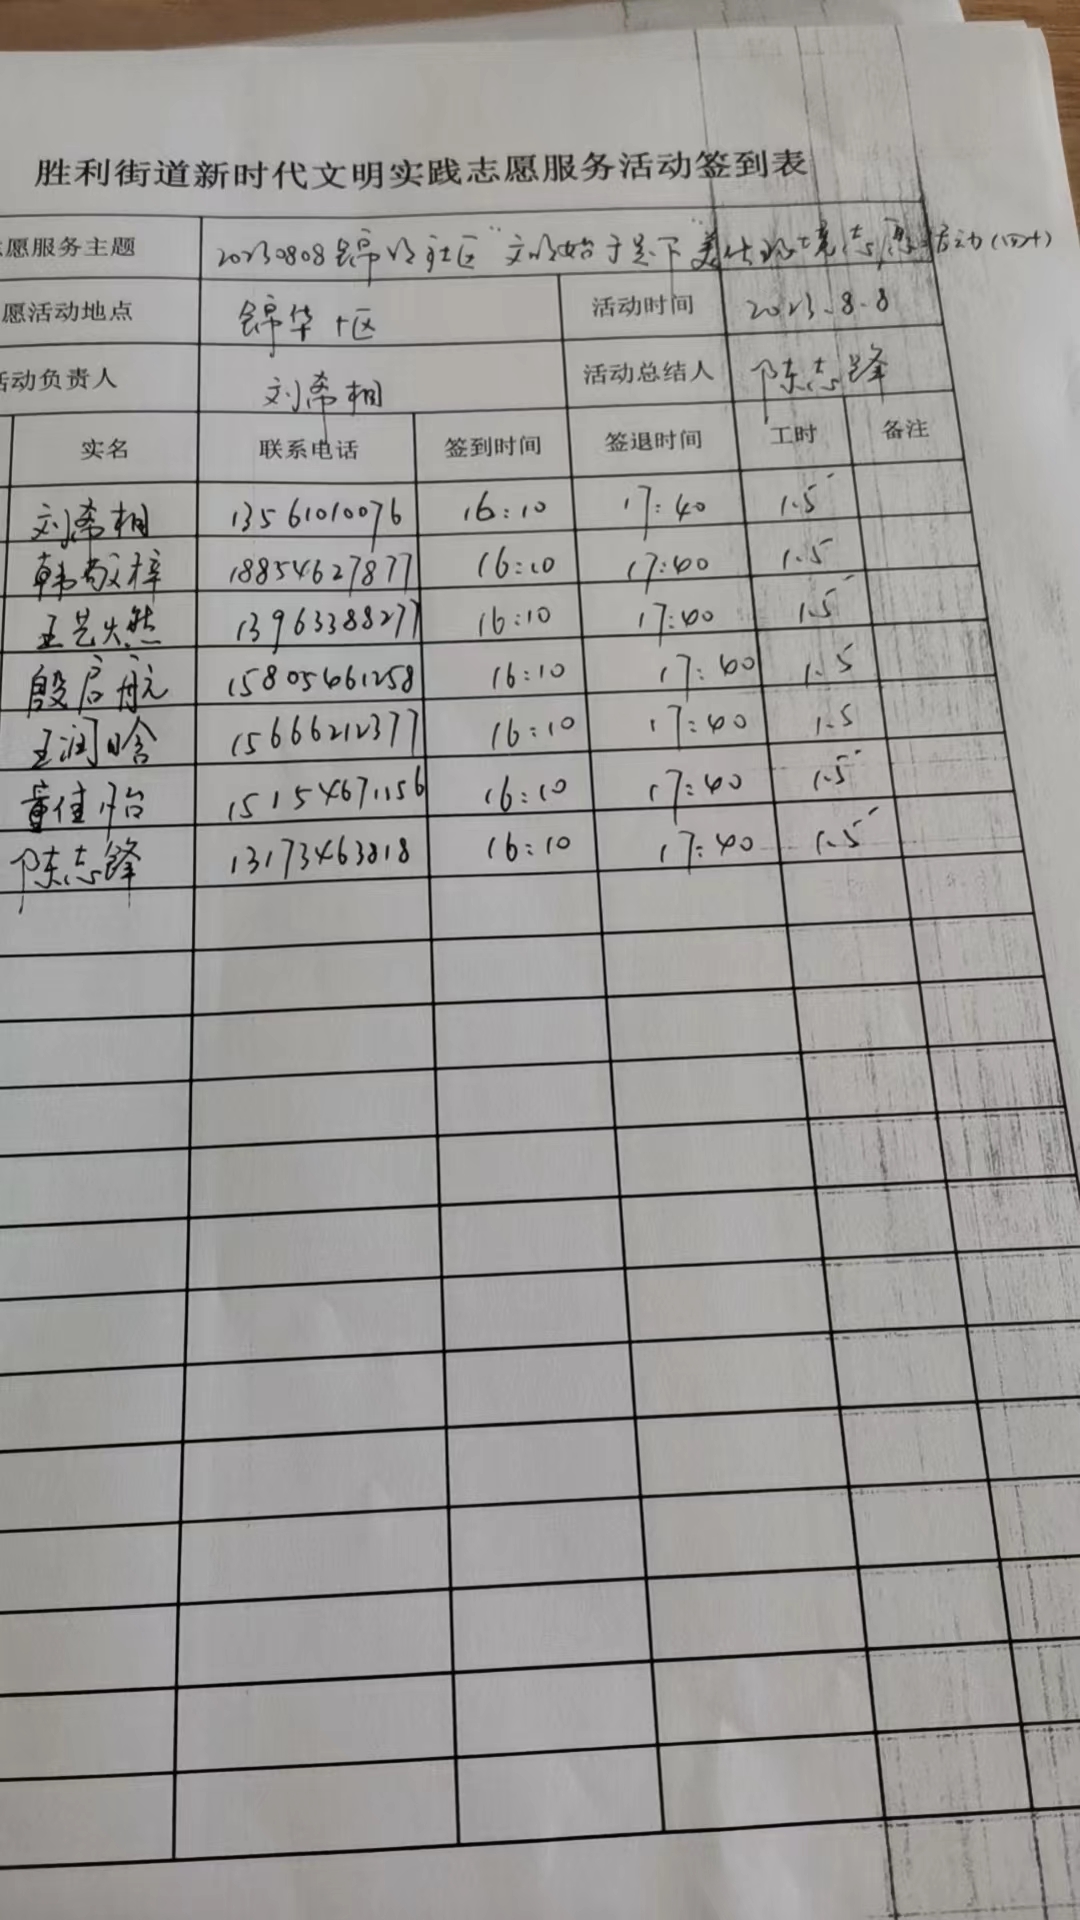 胜利街道新时代文明实践志愿服务活动签到表
愿服务主题 20230808锦华社区“文明始于足下”美化环境志愿活动(四十)
愿活动地点 锦华十区 活动时间 2023.8.8
活动负责人 刘希相 活动总结人 陈志锋
实名 联系电话 签到时间 签退时间 工时 备注
刘希相 13561010076 16:10 17:40 1.5
韩敬梓 18854627877 16:10 17:40 1.5
王艺燃 13963388277 16:10 17:40 1.5
殷启航 15805461258 16:10 17:40 1.5
王润晗 15666212377 16:10 17:40 1.5
董佳怡 15154671156 16:10 17:40 1.5
陈志锋 13173463818 16:10 17:40 1.5